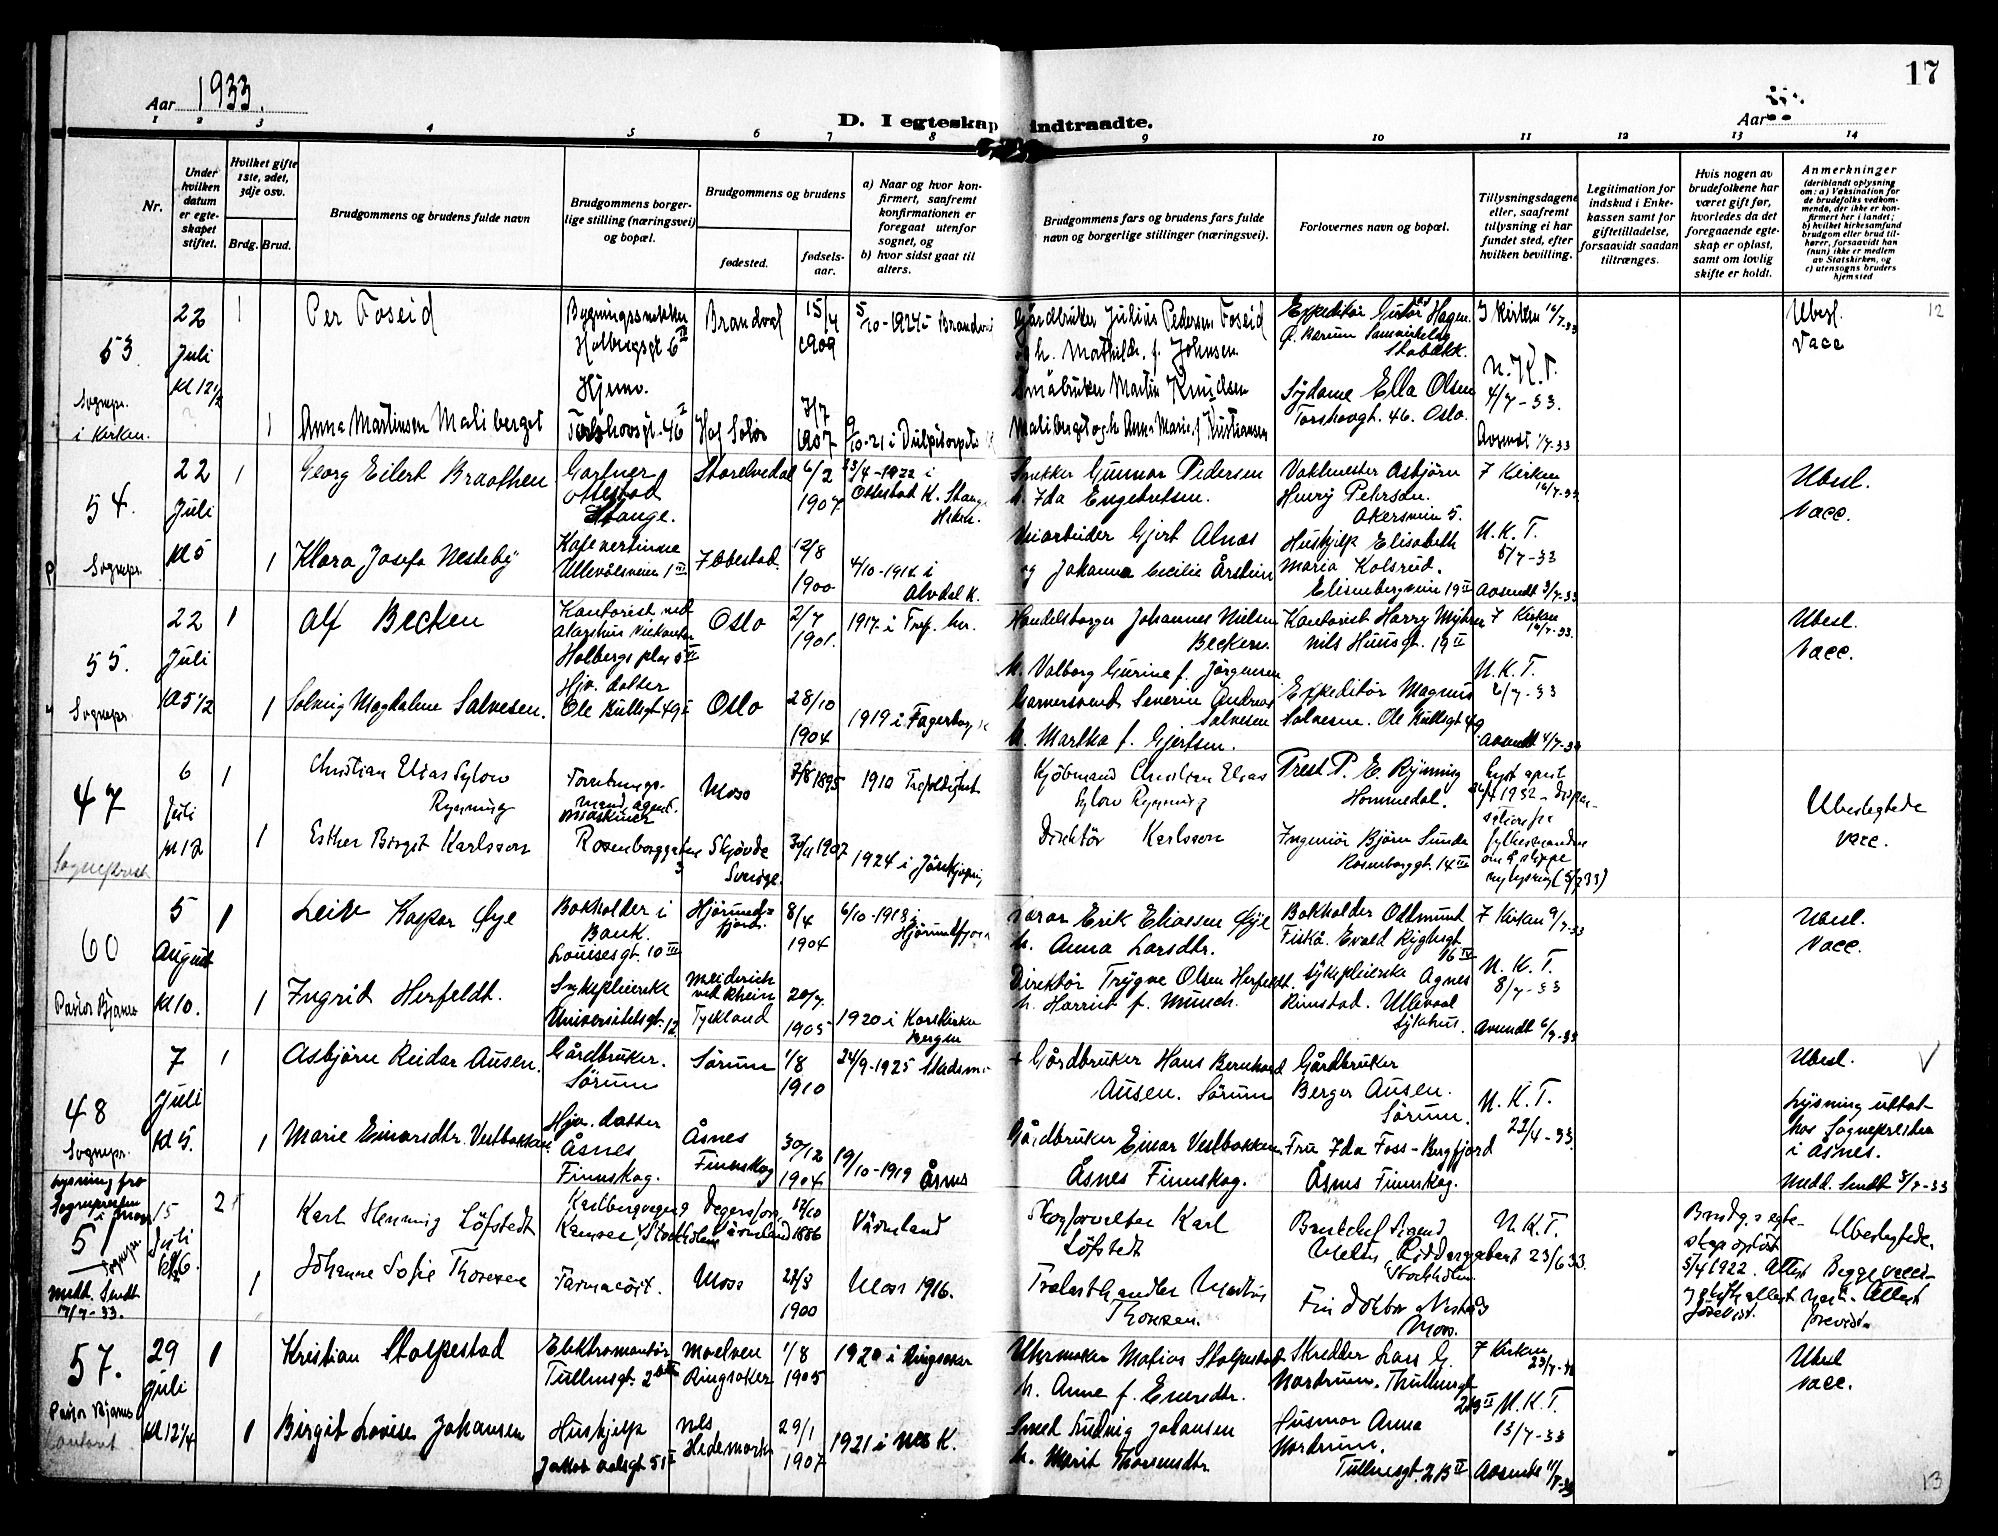 Aar 1933.
D. I egteskap indtraadte.
Aar
17
1 2 3 4 5 6 7 8 9 10 11 12 13 14
Nr.
Under hvilken datum er egteskapet stiftet.
Hvilket gifte 1ste, 2det, 3dje osv.
Brdg. Brud.
Brudgommens og brudens fulde navn
Brudgommens borgerlige stilling (næringsvei) og bopæl.
Brudgommens og brudens
fødested.
fødselsaar.
a) Naar og hvor konfirmert, saafremt konfirmationen er foregaat utenfor sognet, og
b) hvor sidst gaat til alters.
Brudgommens fars og brudens fars fulde navn og borgerlige stillinger (næringsvei).
Forlovernes navn og bopæl.
Tillysningsdagene eller, saafremt tillysning ei har fundet sted, efter hvilken bevilling.
Legitimation for indskud i Enkekassen samt for giftetilladelse, forsaavidt saadan tiltrænges.
Hvis nogen av brudefolkene har været gift før, hvorledes da det foregaaende egteskap er opløst, samt om lovlig skifte er holdt.
Anmerkninger
(deriblandt oplysning om: a) Vaksination for de brudefolks vedkommende, der ikke er konfirmert her i landet; b) hvilket kirkesamfund brudgom eller brud tilhører, forsaavidt han (hun) ikke er medlem av Statskirken, og c) utensogns bruders hjemsted
53. Sognepr. i Kirken.
22 Juli kl 12 1/2
1 Per Foseid
Bygningssnekker Holbergsgt 6 II
Brandval
15/4 1909
5/10-1924 i Brandval
Gårdbruker Julius Pedersen Foseid og h. Mathilde f. Johnsen
Expeditør Gustav Hagen. Stabækk.
I Kirken 16/7-33
Ubesl. Vacc
12
1 Anna Martinsen Maliberget
Hjemv. Torshovsgt. 46 I
Hof Solør
7/7 1907
9/10-21 i
Småbruker Martin Knudsen Maliberget og h. Anna Marie f. Kristiansen
Sydame Ella Olsen Torshovgt. 46. Oslo.
N.K.T. 4/7-33.
Avsendt 1/7-33
54. Sognepr.
22 Juli kl 5
1 Georg Eilert Braathen
Gartner Ottestad Stange.
Storelvedal
6/2 1907
23/4-1922 i Ottestad K. Stange Hedm.
Snekker Gunnar Pedersen h. Ida Engebretsen.
Vaktmester Asbjørn Henry Petersen. Akersveien 5.
I Kirken 16/7-33
Ubesl. Vacc.
1 Klara Josefa Nesteby
Kafevertinne Ullevålsveien 1 III
12/8 1900
4/10-1914 i Alvdal K.
Veiarbeider Gjert Alnæs og Johanna Cecilie
Hushjelp Elisabeth Maria Kolsrud. Elisenbergveien 19 II
N.K.T. 5/7-33
Avsendt 3/7-33
55. Sognepr.
22 Juli kl 5 1/2
1 Alf Becken
Kontorist ved Holbergs plas 5 II
Oslo
2/7 1901.
1917. i Tref. her.
Handelsborger Johannes Nielsen Becken h. Valborg Gurine f. Jørgensen
Kontorist Harry Myhren Nils Huusgt. 19 II
I Kirken 16/7-33.
Ubesl. Vacc.
1 Solveig Magdalene Salvesen.
Hjv. datter Ole Bullsgt 49 I
Oslo
28/10 1904
1919 i Fagerborg K
Garversvend Severin Andreas Salvesen h. Martha f. Gjertsen.
Expeditør Magnus Salvesen. Ole Bullsgt 49
N.K.T. 6/7-33
Avsendt 4/7-33
47 Sogneprest
6 Juli kl 12
1 Christian Elias Sylow Rynning
Forretningsmand, agent. Maskiner
Moss
7/8 1895
1910 Trefoldighet
Kjøbmand Christian Elias Sylow Rynning
Prest P. E. Rynning Hommedal.
Ubeslegtede vacc.
1 Esther Birgit Karlsson
Rosenborggaten 3
Skjøvde Sverige.
30/11 1907
1924 i Jönkjøping
Direktør Karlsson
Ingeniør Bjørn Sunde Rosenborggt. 14 III
60 Pastor Bjarnes
5 August kl 10.
1 Leik Kaspar Øye
Bokholder i Bank. Louisesgt. 10 III
Hjørundfjord.
8/4 1904
6/10-1918 i Hjørundfjord
Lærer Erik Eliassen Øye h. Anna Larsdtr.
Bokholder Oddmund Fiskå. Evald Ryghsgt 6 IV
I Kirken 9/7-33
Ubesl. Vacc.
1 Ingrid Herfeldt.
Sykepleierske Universitetsgt. 12
Meiderich ved Rhein Tyskland
20/7. 1905
1920 i Korskirken Bergen
Direktør Trygve Olsen Herfeldt. h. Harriet f. Münch.
Sykepleierske Agnes Rimstad. Ullevaal Sykehus.
N.K.T. 8/7-33
Avsendt 6/7-33
48 Sognepr.
7 Juli kl 5.
1 Asbjørn Reidar Ausen.
Gårdbruker. Sørum
Sørum
1/8 1910
24/9-1925
+ Gårdbruker Hans Bernhard Ausen. Sørum
Gårdbruker Berger Ausen. Sørum.
N.K.T. 22/4-33
Ubesl. Lysning uttat hos Sognepresten i Åsnes. Medd. Sendt 8/7-33
1 Marie Einarsdtr. Vestbakken
Hjv. datter Åsnes Finnskog.
Åsnes Finnskog
30/12 1904
19/10-1919 Åsnes
Gårdbruker Einar Vestbakken. Åsnes Finnskog.
Fru Ida Foss-Bergfjord Åsnes Finnskog.
Lysning fra Sognepresten i Moss
51 Sognepr. Medd. Sendt 17/7-33.
15 Juli kl 6.
2 Karl Henning Löfstedt
Karlbergvegen Stockholm
Degerfors, Värmland
12/10 1886
Värmland
Skogforvalter Karl Löfstedt
Riddergatan Stockholm
N.K.T. 23/6 33.
Brudg.s egteskap opløst 5/4 1922. Attest forevist.
Ubeslegtede. Begge vacc. Attest forevist.
1 Johanne Sofie Thoresen
Farmaceut.
Moss
22/3 1900
Moss 1916.
Trælasthandler Martin Thoresen.
Fru Doktor Moss.
57. Pastor Bjarnes Kontoret
29 Juli kl 12 1/4
1 Kristian Stolpestad
Elektromontør Tullinsgt. 2
Moelven Ringsaker
1/8 1905
1920 i Ringsaker
Uhrmaker Matias Stolpestad h. Anne f. Enersdtr.
Skredder Lars G. Nordrum. Thullinsgt 2B II
I Kirken 23/7-33
Ubesl Vacc.
1 Birgit Lovise Johansen
Hushjelp Jakob Aalsgt. 51 II
Nes Hedemarken
29/1 1907
1921 i Nes K.
Smed Ludvig Johansen h. Marit Thorsendtr.
Husmor Anna Nordrum. Tullinsgt. 2B II
N.K.T. 13/7-33
Avsendt 11/7-33
13